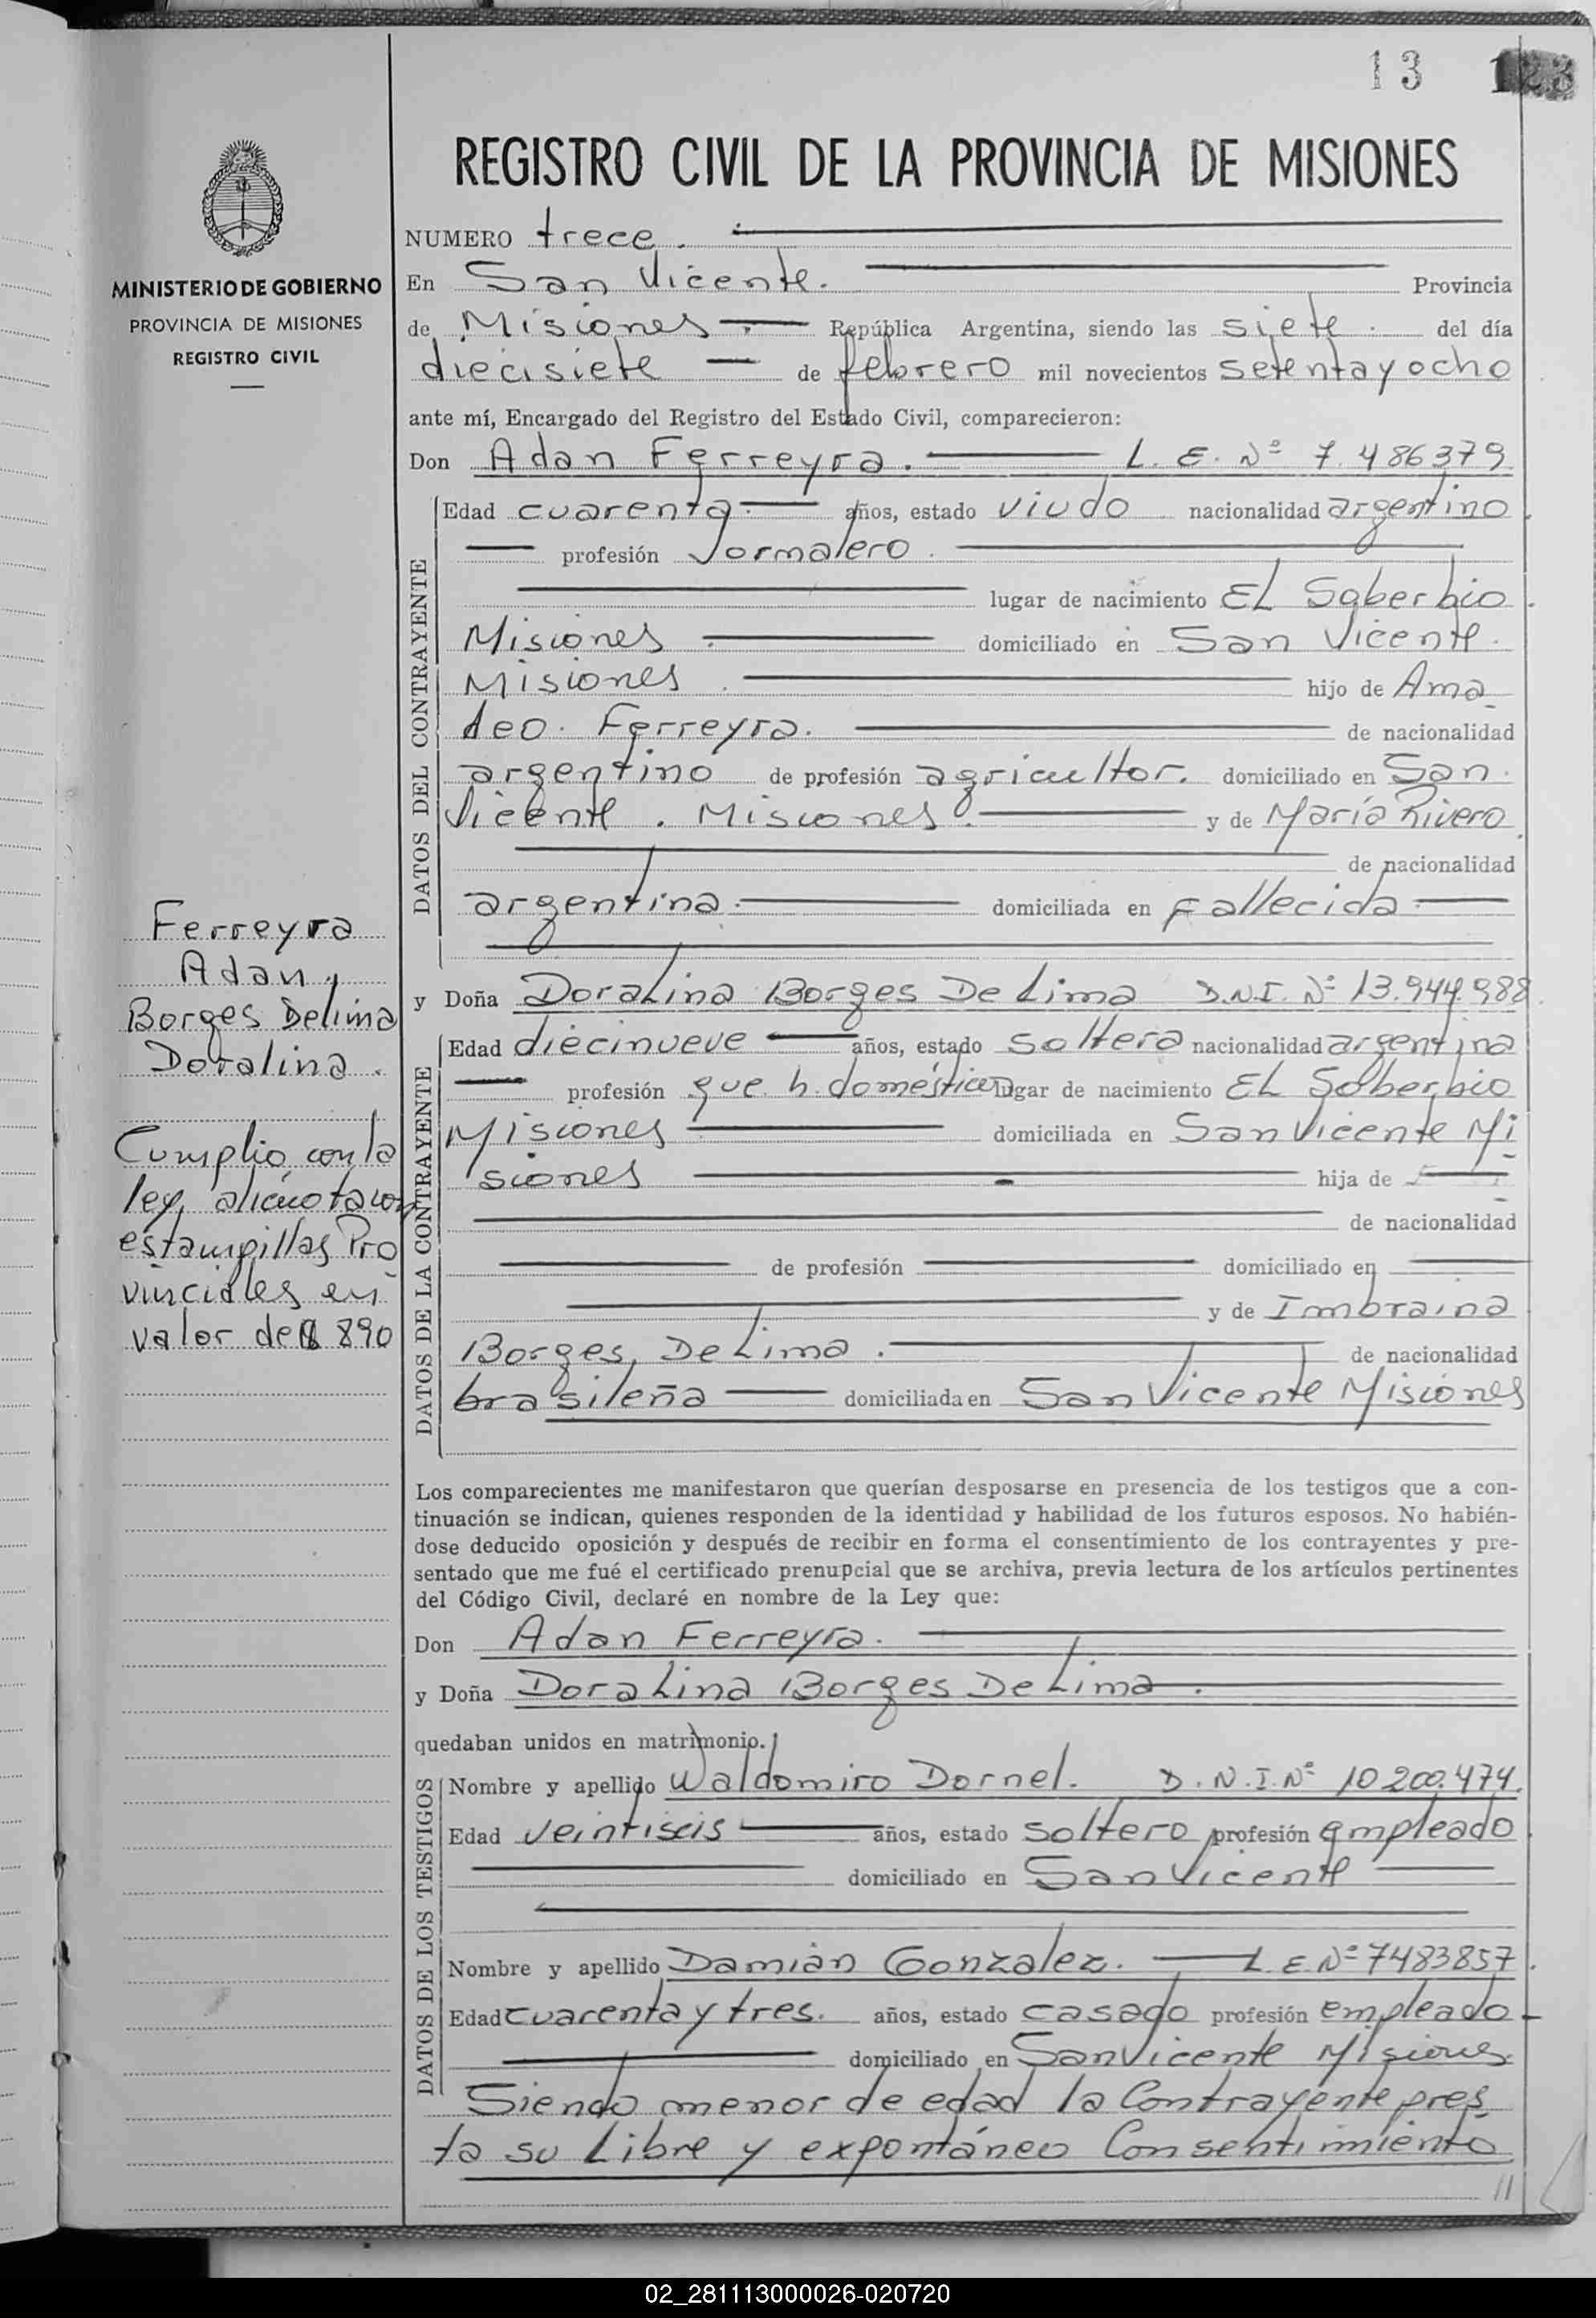 13 123
REGISTRO CIVIL DE LA PROVINCIA DE MISIONES
MINISTERIO DE GOBIERNO
PROVINCIA DE MISIONES
REGISTRO CIVIL
NUMERO trece.
En San Vicente. Provincia
de Misiones República Argentina, siendo las siete del día
diecisiete de febrero mil novecientos setenta y ocho
ante mí, Encargado del Registro del Estado Civil, comparecieron:
Don Adan Ferreyra. L. E. Nº 7.486379
DATOS DEL CONTRAYENTE
Edad cuarenta años, estado viudo nacionalidad argentino
profesión Jornalero.
lugar de nacimiento EL Soberbio
Misiones domiciliado en San Vicente.
Misiones. hijo de Ama
deo. Ferreyra. de nacionalidad
argentino de profesión agricultor. domiciliado en San
Vicente. Misiones. y de María Rivero
de nacionalidad
argentina. domiciliada en fallecida
Ferreyra
Adan,
Borges Delima
Doralina.
Cumplio con la
ley, alicuota con
estampillas Pro
vinciales en
valor de $ 890
y Doña DoraLina Borges De Lima D.N.I. Nº 13.944.988
DATOS DE LA CONTRAYENTE
Edad diecinueve años, estado soltera nacionalidad argentina
profesión que h. domésticos lugar de nacimiento EL Soberbio
Misiones domiciliada en San Vicente Mi
siones hija de
de nacionalidad
de profesión domiciliado en
y de Imbraina
Borges, De Lima. de nacionalidad
brasileña domiciliada en San Vicente Misiones
Los comparecientes me manifestaron que querían desposarse en presencia de los testigos que a con-
tinuación se indican, quienes responden de la identidad y habilidad de los futuros esposos. No habién-
dose deducido oposición y después de recibir en forma el consentimiento de los contrayentes y pre-
sentado que me fué el certificado prenupcial que se archiva, previa lectura de los artículos pertinentes
del Código Civil, declaré en nombre de la Ley que:
Don Adan Ferreyra.
y Doña DoraLina Borges De Lima.
quedaban unidos en matrimonio.
DATOS DE LOS TESTIGOS
Nombre y apellido Waldomiro Dornel. D.N.I.Nº 10200.474.
Edad veintiseis años, estado soltero profesión empleado
domiciliado en San Vicente
Nombre y apellido Damián Gonzalez. L.E.Nº 7483857
Edad cuarenta y tres. años, estado casado profesión empleado
domiciliado en San Vicente Misiones
Siendo menor de edad la Contrayente pres
ta su Libre y expontáneo Consentimiento
//
02_281113000026-020720